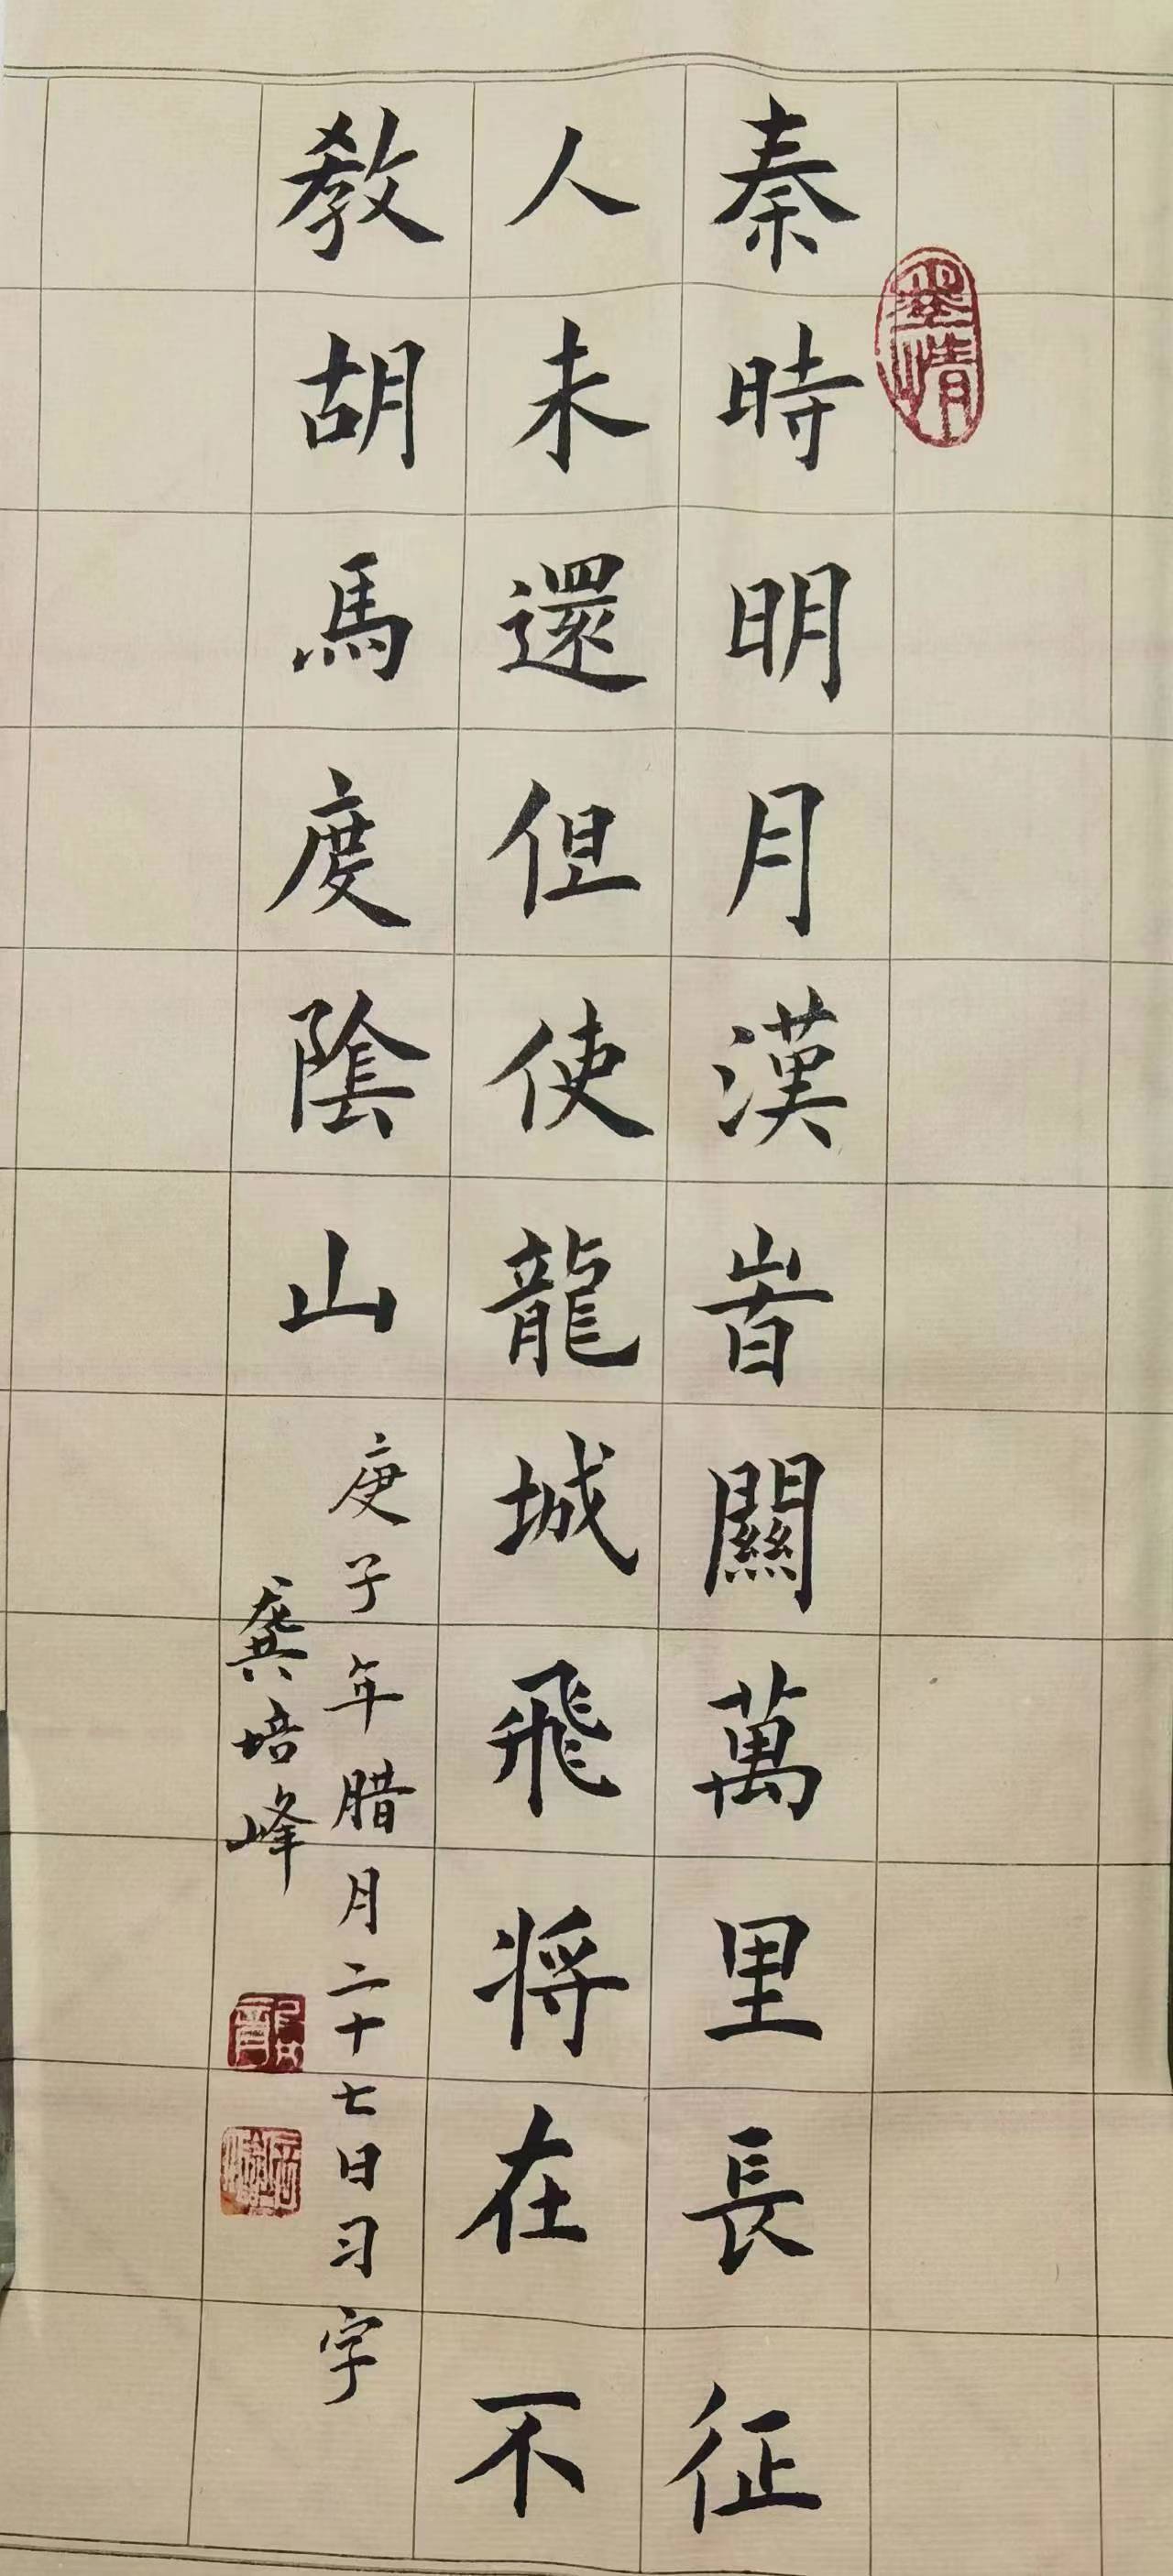 秦時明月漢峕關萬里長征
人未還但使龍城飛將在不
教胡馬度陰山
庚子年腊月二十七日习字
龔培峰
墨情